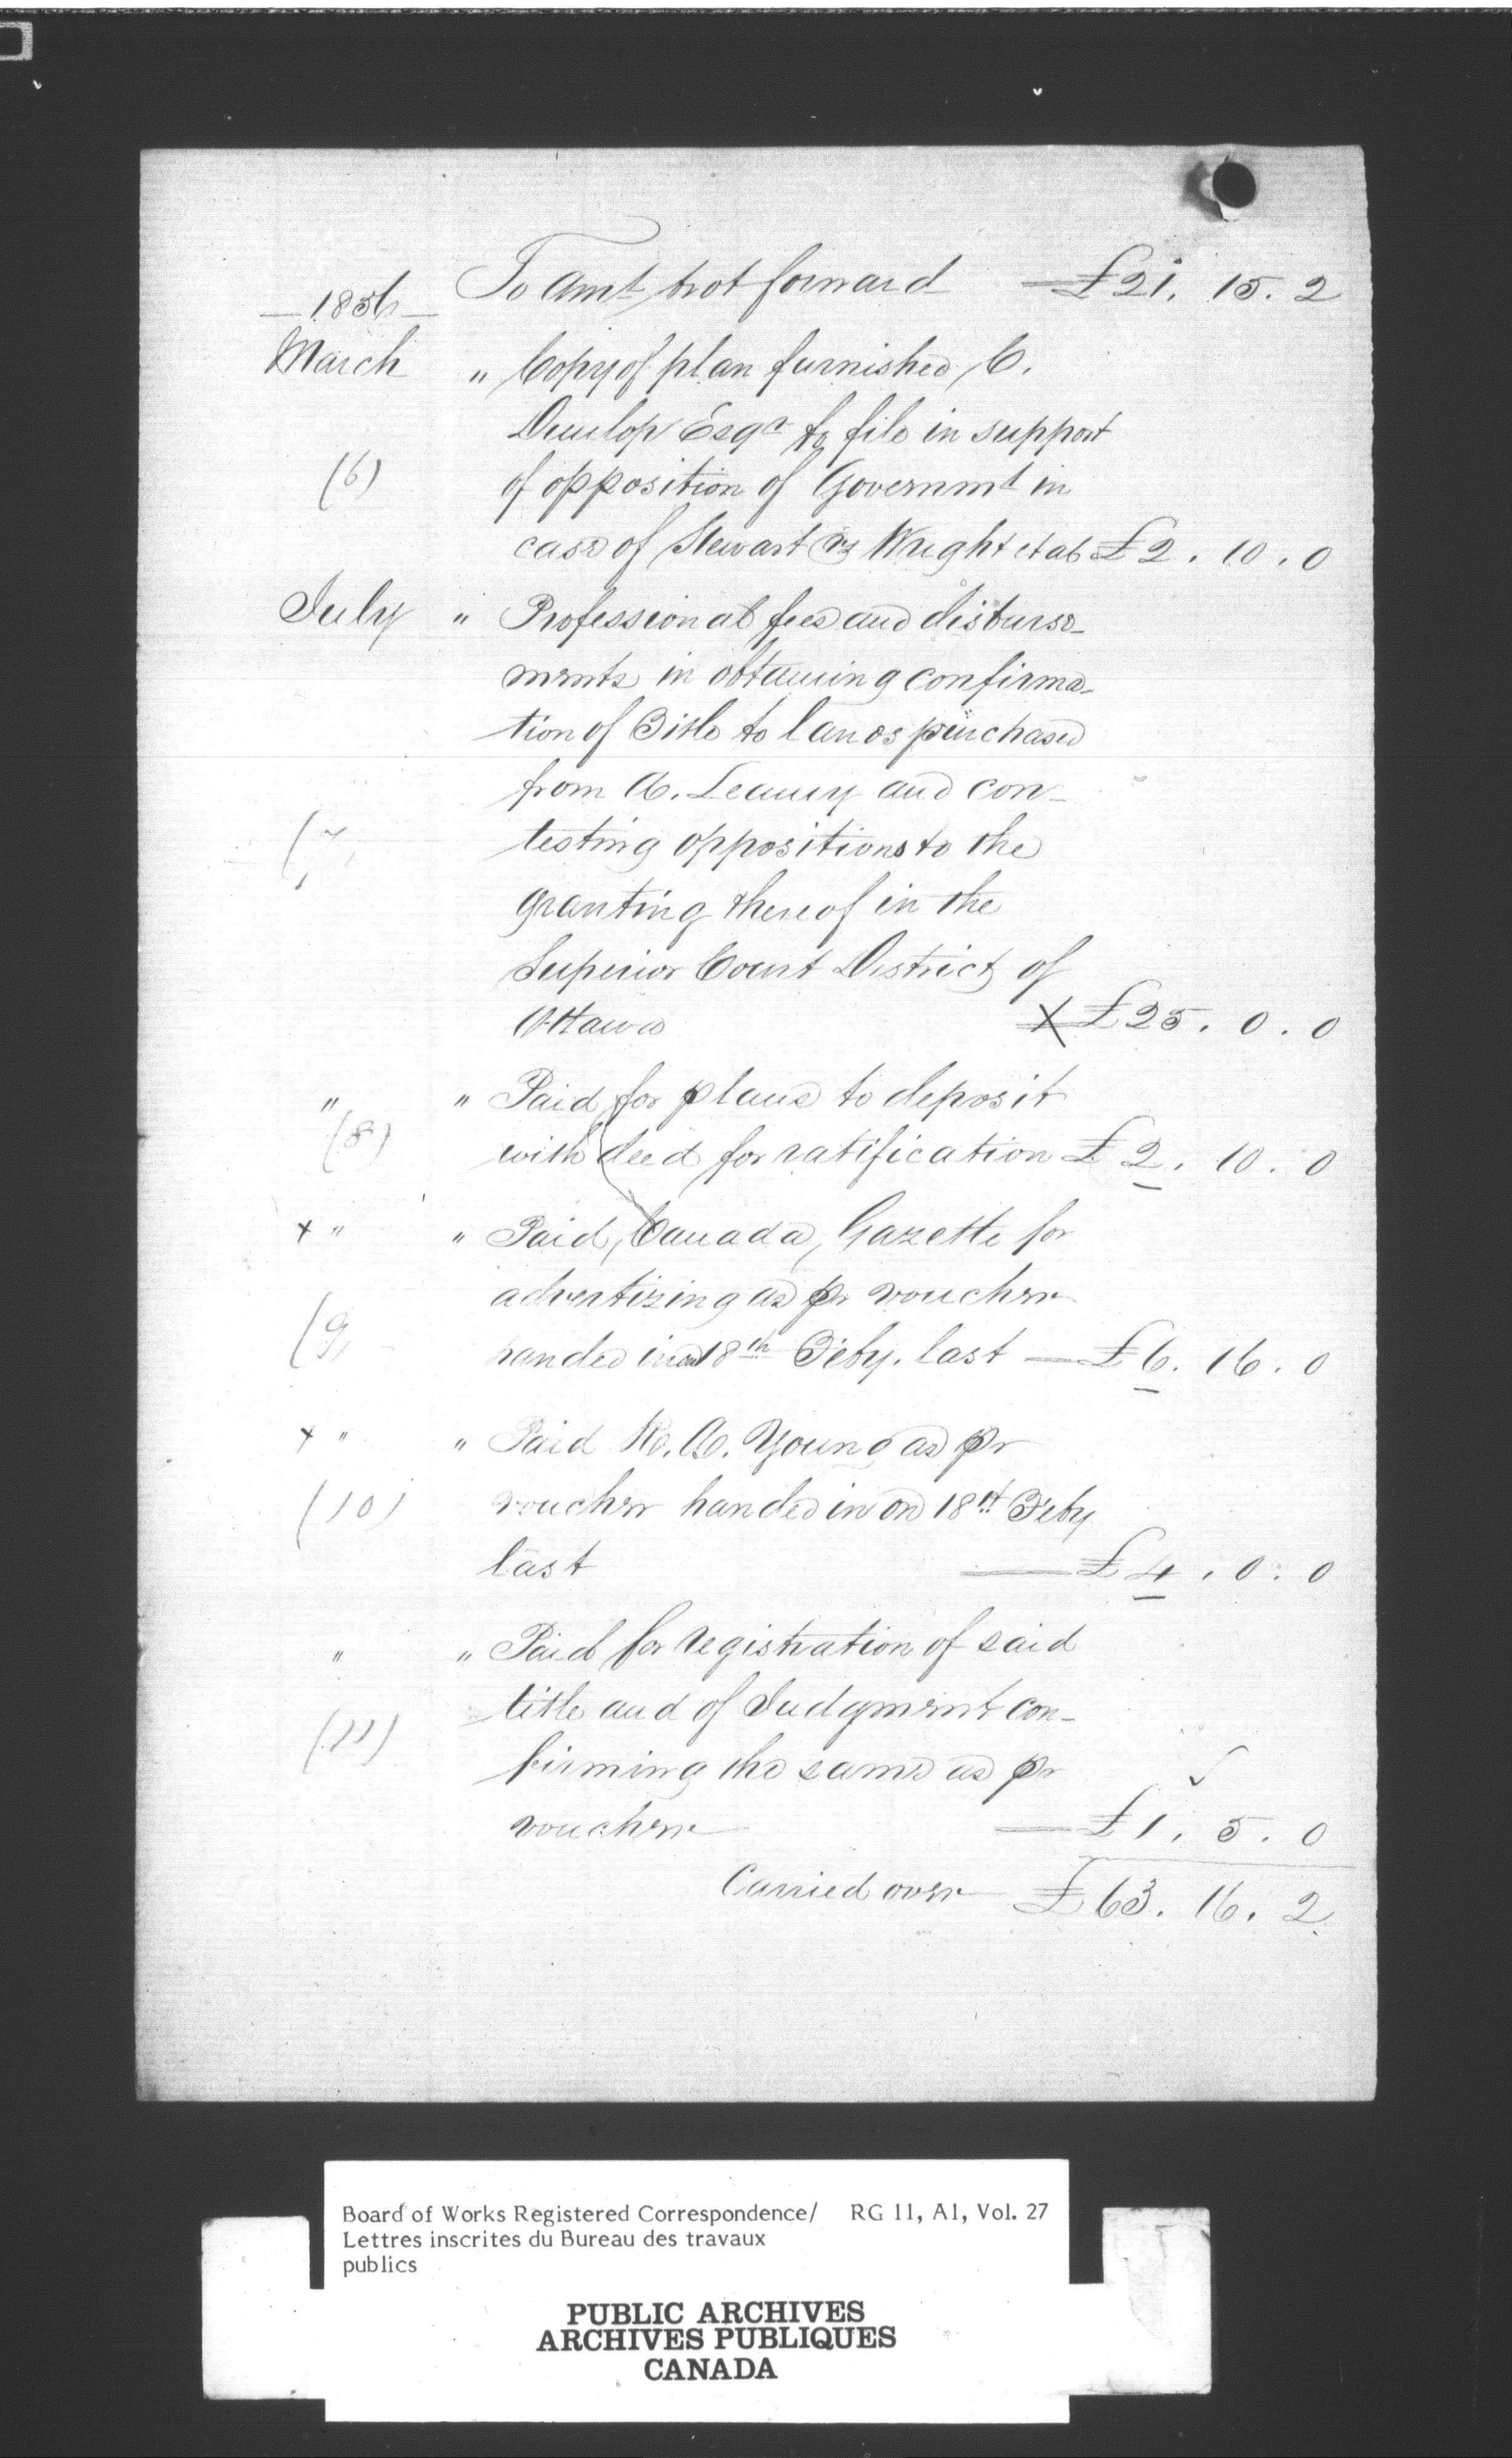 To Amt brot forward — £21. 15. 2
— 1856 —
March " Copy of plan furnished C.
Dunlop Esqr to file in support
(6) of opposition of Governmt in
case of Stewart vs Wright et al £2. 10. 0
July " Professional fees and disburse-
ments in obtaining confirma-
tion of Title to lands purchased
from A. Leamy and con-
(7) testing oppositions to the
granting thereof in the
Superior Court District of
Ottawa X £25. 0. 0
" " Paid for plans to deposit
(8) with deed for ratification £2. 10. 0
x " " Paid Canada Gazette for
advertizing as pr voucher
(9) handed in on 18th Feby. last — £6. 16. 0
x " " Paid H. A. Young as pr
(10) voucher handed in on 18th Feby
last — £4. 0. 0
" " Paid for registration of said
title and of Judgment con-
(11) firming the same as pr
voucher — £1. 5. 0
Carried over £63. 16. 2
Board of Works Registered Correspondence/ RG 11, A1, Vol. 27
Lettres inscrites du Bureau des travaux
publics
PUBLIC ARCHIVES
ARCHIVES PUBLIQUES
CANADA